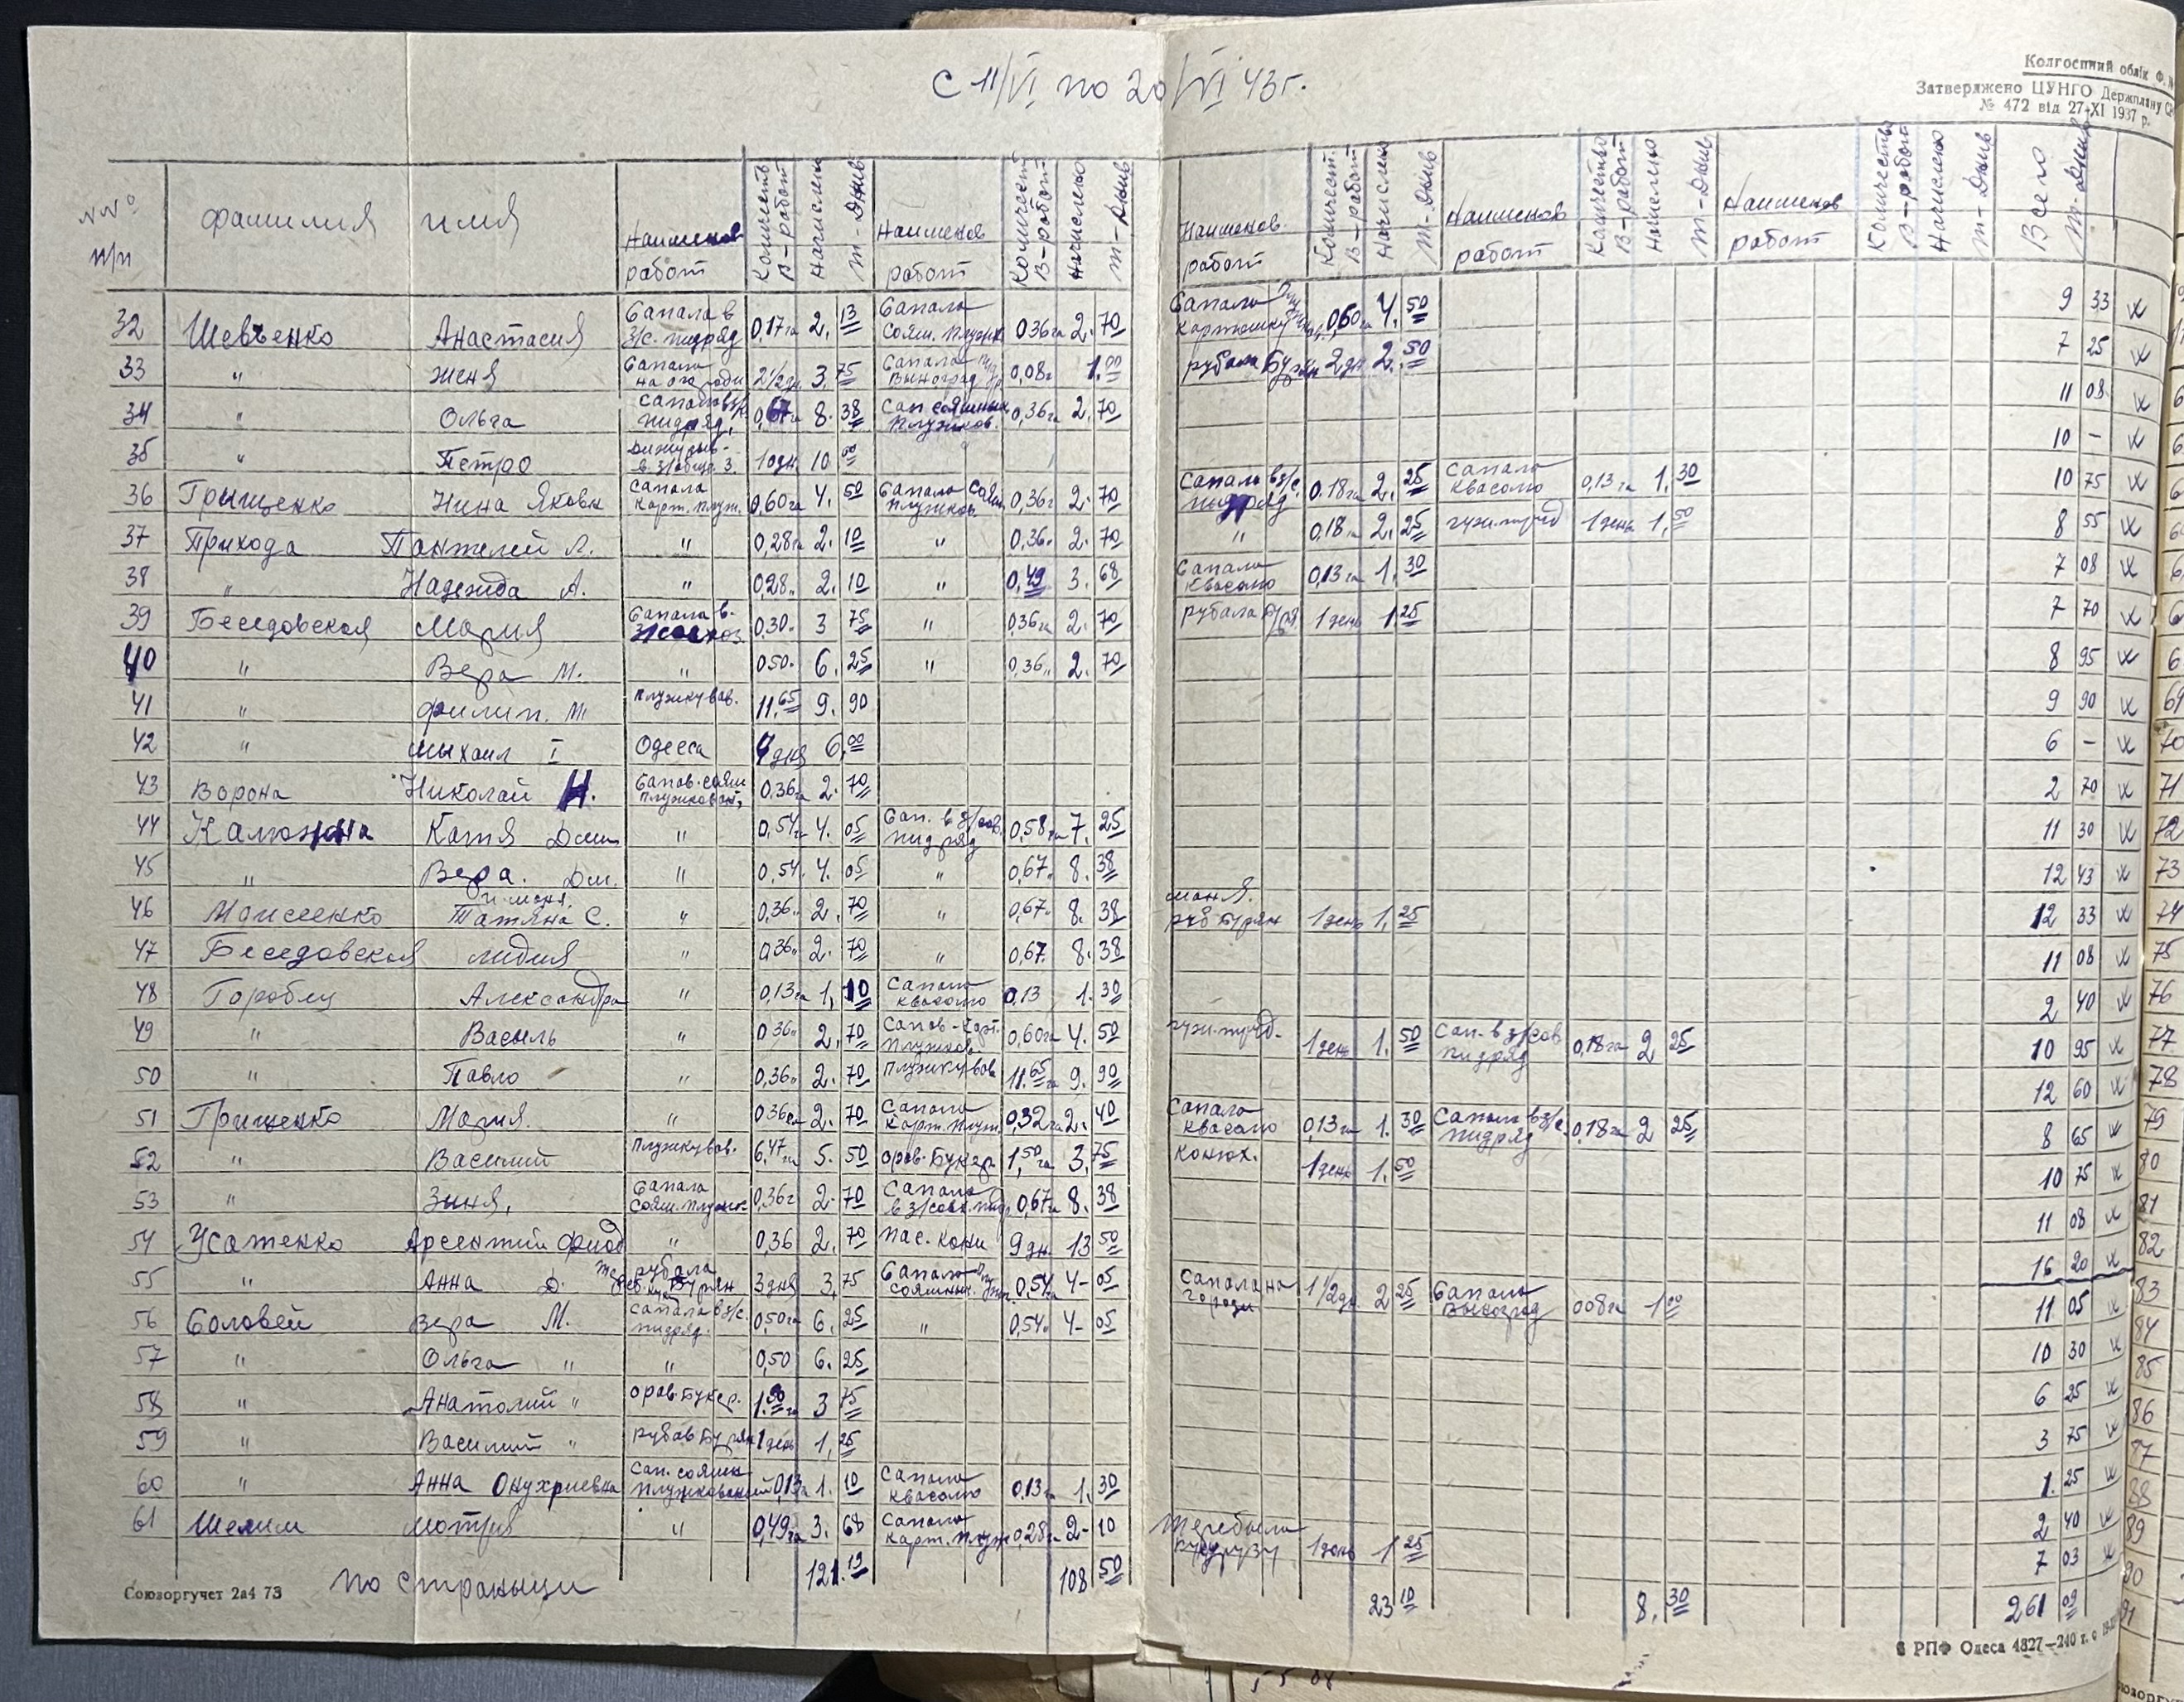 С 11/VI по 20/VI 43 г.
Колгоспний облік Ф.
Затверджено ЦУНГО Держплану
№ 472 від 27-XI 1937 р.
№№ п/п фамилия имя Наименов работ Количеств В-работ Начислено т-Днив Наименов работ Количест В-работ Начислено т-Днив Наименов. работ Количест. В-работ Начислено т-Днив Наименов работ Количество В-работ Начислено т-Днив Наименов работ Количество В-работ Начислено т-Днив Всего т-Днив
32 Шевченко Анастасия Сапала в з/с. пидряд 0,17га 2. 13 Сапала сояш. плужк 036га 2. 70 Сапала картошку 0,60га 4. 50 9 33
33 " Женя Сапала на огороди 2 1/2 дн. 3. 75 Сапала Выноград 0,08г 1. 00 рубала Бурян 2 дн 2. 50 7 25
34 " Ольга Сапала в з/с пидряд, 0,67га 8. 38 Сап сояшных плужков. 0,36га 2. 70 11 08
35 " Пётро 10 дн. 10 00 10 –
36 Грищенко Нина Яковл Сапала карт. плуж. 0,60га 4. 50 Сапала сояш плужков. 0,36г 2. 70 Сапала в з/с. пидряд 0.18га 2. 25 Сапала квасолю 0,13га 1. 30 10 75
37 Приходa Пантелей Л. " 0,28га 2. 10 " 0,36" 2. 70 " 0,18га 2. 25 1 день 1. 50 8 55
38 " Надежда А. " 0,28" 2. 10 " 0,49 3. 68 Сапала квасолю 0,13га 1. 30 7 08
39 Беседовская Мария Сапала в. 0,30" 3 75 " 036га 2. 70 рубала 1 день 1 25 7 70
40 " Вера М. " 050" 6. 25 " 0,36" 2. 70 8 95
41 " Филип. М. плужкував. 11.65 9. 90 9 90
42 " Мыхаил I Одесса 4 дня 6. 00 6 –
43 Ворона Николай Н. Сапов. сояш плужкован, 0,36га 2. 70 2 70
44 Калюжна Катя Дм " 0,54га 4. 05 Сап. в з/сов. пидряд 0,58га 7. 25 11 30
45 " Вера. Дм. " 0,54" 4. 05 " 0,67" 8. 38 12 43
46 Моисеенко Татяна С. " 0,36" 2. 70 " 0,67" 8. 38 руб бурян 1 день 1. 25 12 33
47 Беседовская лидия " 0,36" 2. 70 " 0,67" 8. 38 11 08
48 Горобец Александра " 0,13га 1, 10 Сапала квасолю 0,13 1. 30 2 40
49 " Васыль " 0,36" 2. 70 Сапов-карт. плужков 0,60га 4. 50 1 день 1. 50 Сап. в з/сов пидряд 0,18га 2 25 10 95
50 " Павло " 0,36" 2. 70 плужкував 11.65га 9. 90 12 60
51 Грищенко Мария " 036га 2. 70 Сапала карт. плуж. 0,32га 2. 40 Сапала квасолю 0,13га 1. 30 Сапала в з/с. пидряд 0,18га 2 25 8 65
52 " Василий плужкував. 6,47га 5. 50 орав. Букер 1,50га 3. 75 Конюх. 1 день 1. 50 10 75
53 " Зиня, Сапала сояш. плужк. 0,36г 2. 70 Сапала в з/сов. пид 0,67га 8. 38 11 08
54 Усатенко Арсентий Фиод " 0,36 2. 70 пас. кони 9 дн. 13 50 16 20
55 " Анна Д. рубала бурян 3 дня 3, 75 Сапала сояшн. 0,54га 4- 05 Сапала на городи 1 1/2 дн. 2 25 Сапала Выноград 008га 1 00 11 05
56 Соловей Вера М. Сапала в з/с. пидряд. 0,50га 6. 25 " 0,54" 4- 05 10 30
57 " Ольга " " 0,50 6. 25 6 25
58 " Анатолий " орав. Букер. 1.50га 3 75 3 75
59 " Василий " рубав Бурян 1 день 1, 25 1. 25
60 " Анна Онухриевна Сап. сояшн плужкований 0,13га 1. 10 Сапала квасолю 0,13га 1. 30 2 40
61 Шелим мотря " 0,49га 3. 68 Сапала карт. плуж 0,28га 2- 10 теребила кукурузу 1 день 1 25 7 03
по страныци 121. 19 108 50 23 10 8. 30 261 09
Союзоргучет 2а4 73
РПФ Одеса 4827—240 т.